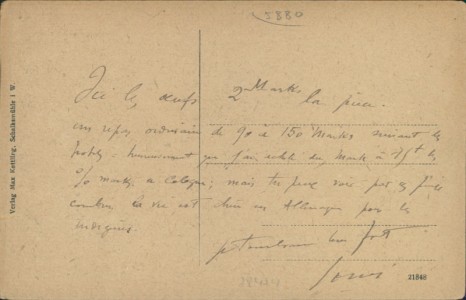 3880
Ici les œufs 2 Marks la pièce.
un repas ordinaire de 90 à 150 Marks suivant les
hotels. heureusement que j'ai acheté des Marks à
marks, a Cologne; mais tu peux voir par ce
combien la vie est chère en Allemagne pour les
indigènes.
Louis
Verlag Max Kettling, Schalksmühle i. W.
21848